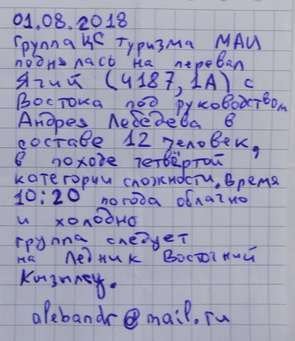 01.08.2018
Группа ЦС туризма МАИ
поднялась на перевал
Ягий (4187, 1А) с
Востока под руководством
Андрея Лебедева в
составе 12 человек,
в походе четвёртой
категории сложности. Время
10:20 погода облачно
и холодно
группа следует
на Ледник Восточный
Кызылсу.
alebandr@mail.ru